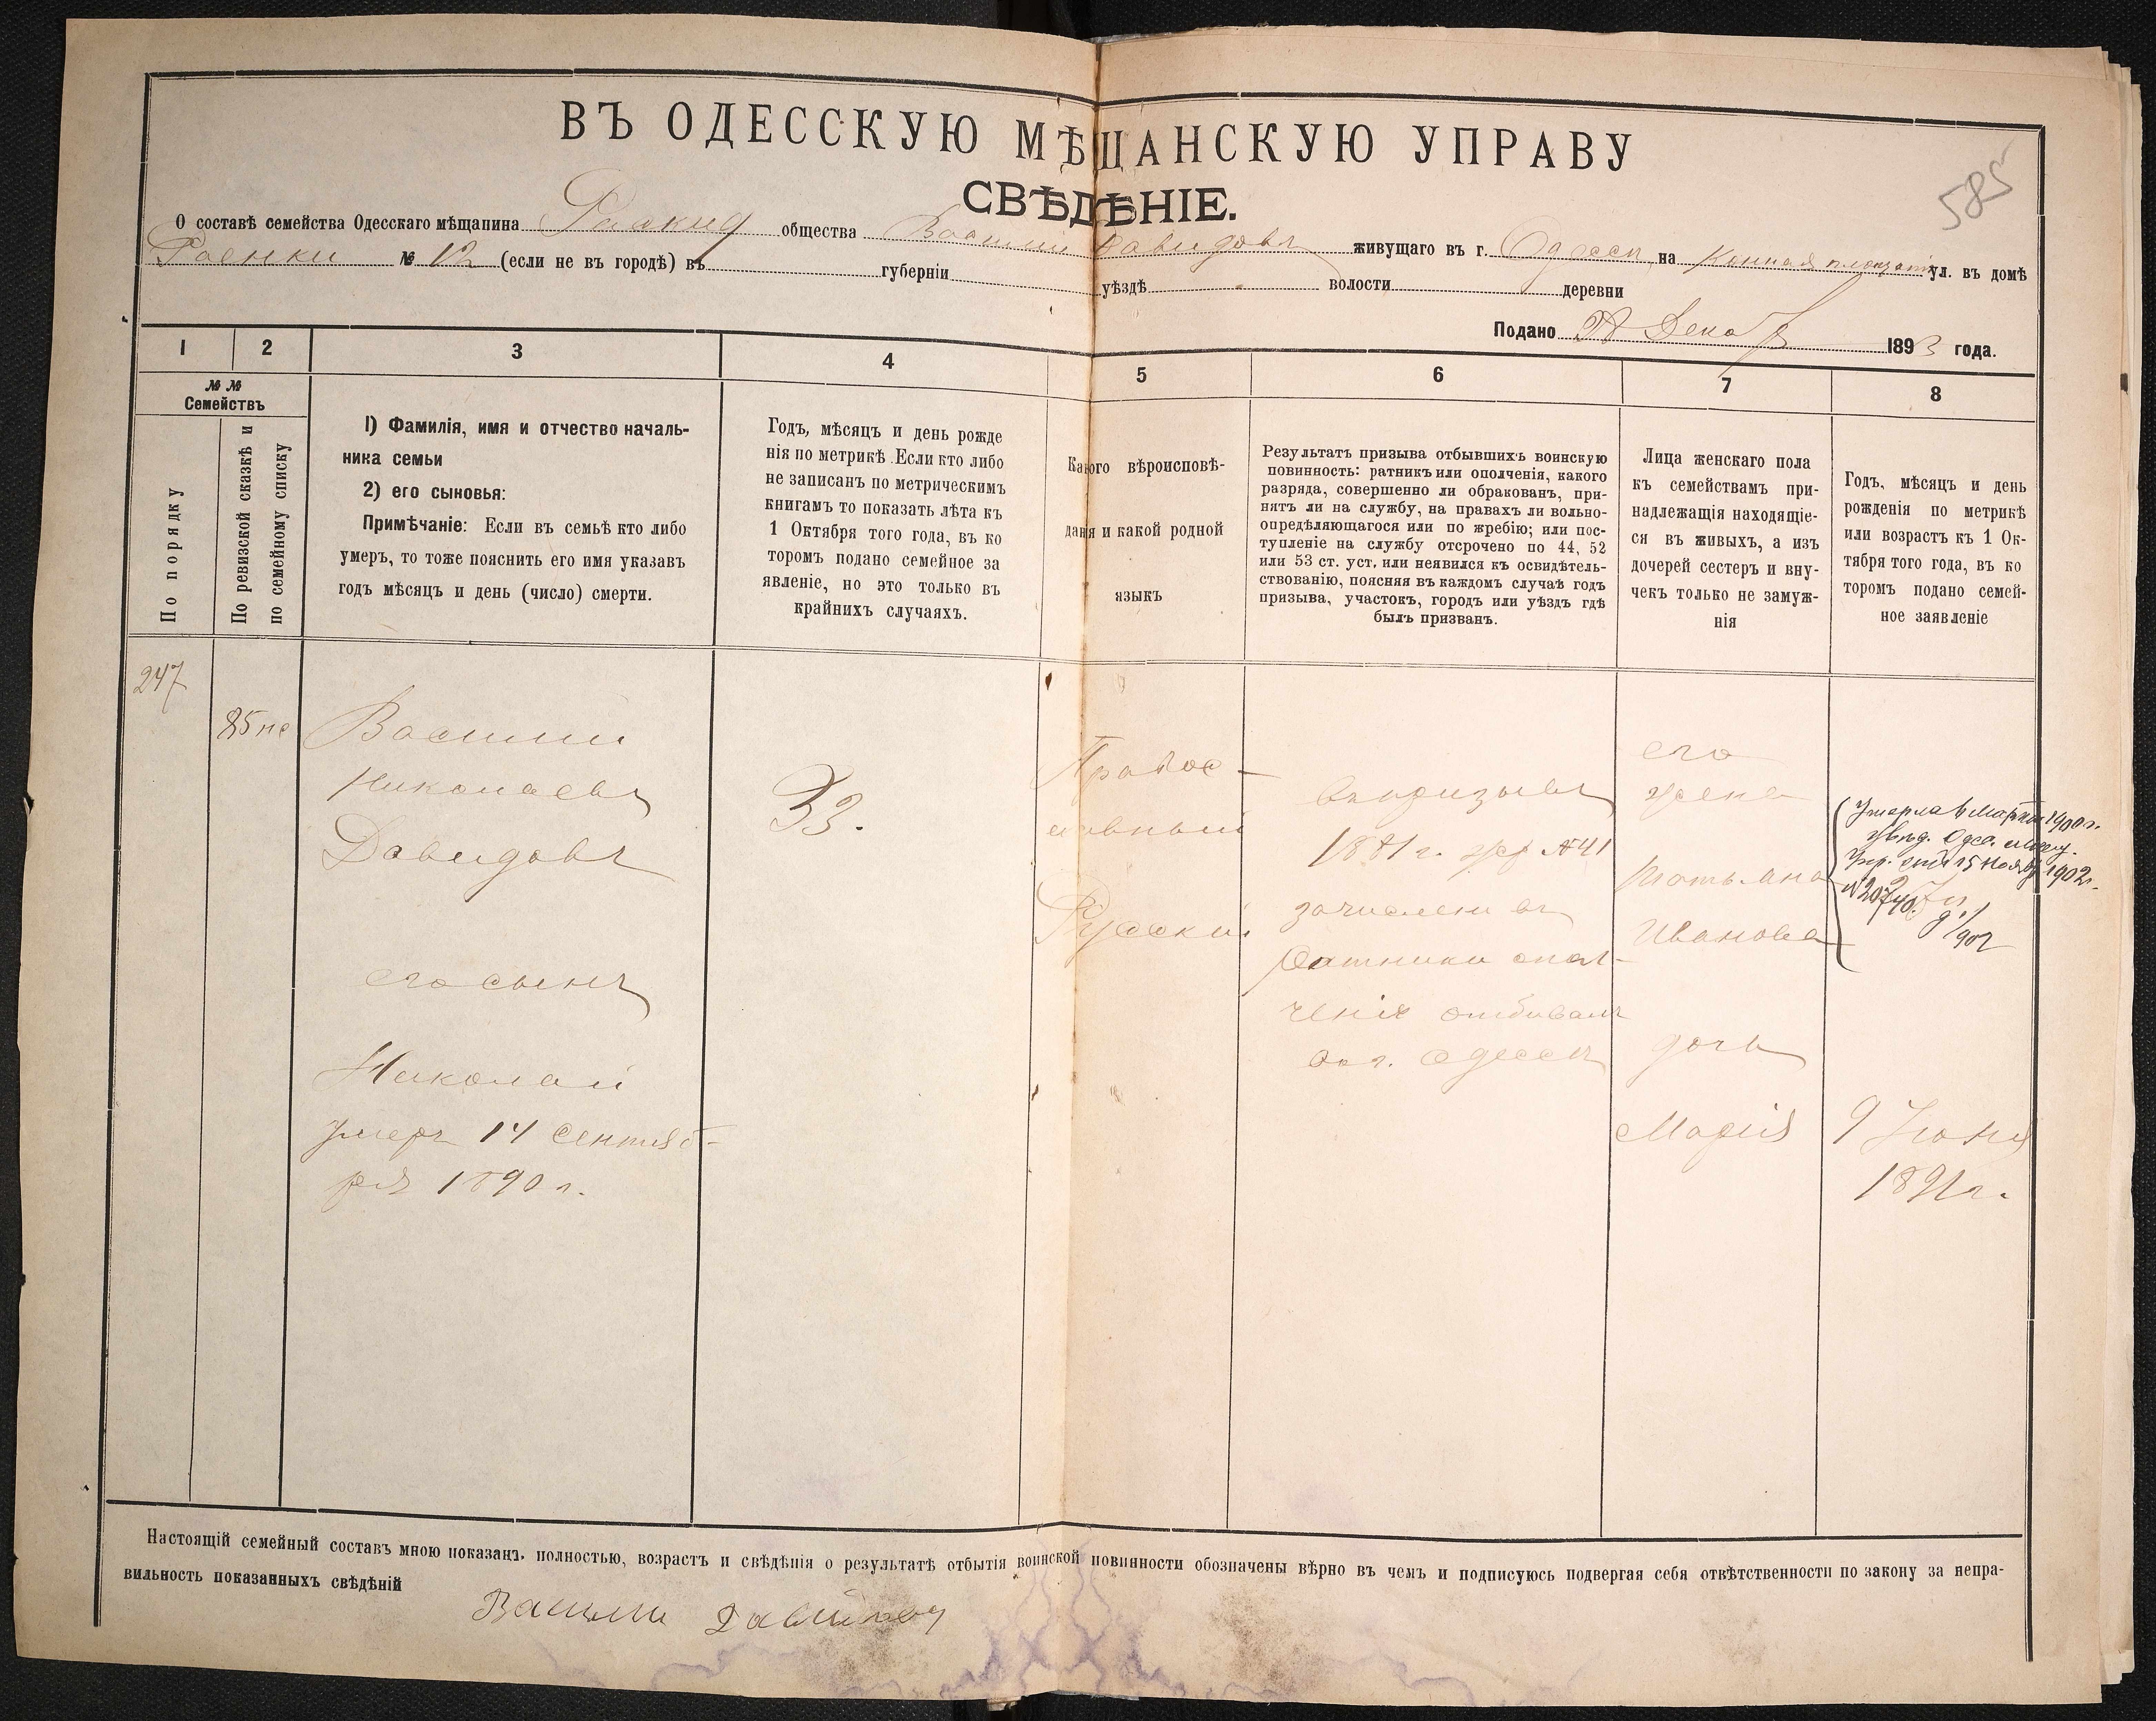 ВЪ ОДЕССКУЮ МѢЩАНСКУЮ УПРАВУ
585
СВѢДѢНІЕ.
О составѣ семейства Одесскаго мѣщанина общества Василій Давидовъ живущаго въ г. Одессѣ на Конная площадь ул. въ домѣ
№ 12 (если не въ городѣ) въ губерніи уѣздѣ волости деревни
Подано Декаб 1893 года.
1 2 3 4 5 6 7 8
№ №
Семействъ
По порядку
По ревизской сказкѣ и
по семейному списку
1) Фамилія, имя и отчество началь-
ника семьи
2) его сыновья:
Примѣчаніе: Если въ семьѣ кто либо
умеръ, то тоже пояснить его имя указавъ
годъ мѣсяцъ и день (число) смерти.
Годъ, мѣсяцъ и день рожде
нія по метрикѣ. Если кто либо
не записанъ по метрическимъ
книгамъ то показать лѣта къ
1 Октября того года, въ ко
торомъ подано семейное за
явленіе, но это только въ
крайнихъ случаяхъ.
Какого вѣроисповѣ-
данія и какой родной
языкъ
Результатъ призыва отбывшихъ воинскую
повинность: ратникъ или ополченія, какого
разряда, совершенно ли обракованъ, при-
нятъ ли на службу, на правахъ ли вольно-
опредѣляющагося или по жребію; или пос-
тупленіе на службу отсрочено по 44, 52
или 53 ст. уст. или неявился къ освидѣтель-
ствованію, поясняя въ каждомъ случаѣ годъ
призыва, участокъ, городъ или уѣздъ гдѣ
былъ призванъ.
Лица женскаго пола
къ семействамъ при-
надлежащія находящіе-
ся въ живыхъ, а изъ
дочерей сестеръ и вну-
чекъ только не замуж-
нія
Годъ, мѣсяцъ и день
рожденія по метрикѣ
или возрастъ къ 1 Ок-
тября того года, въ ко
торомъ подано семей-
ное заявленіе
247
Василий
Николаевъ
Давидовъ
его сынъ
Николай
умеръ 14 Сентяб-
ря 1890 г.
33.
Правос-
лавный
Русский
въ призывъ
1881 г. жр №41
зачисленъ въ
Ратники опол-
ченія отбывалъ
въ г. Одессѣ
его
жена
Татьяна
Иванова
дочь
Марія
Умерла 4 Марта 1900 г.
увѣд. Одес. мѣщ.
Упр. отъ 15 Ноябр 1902 г.
№20740.
9 Іюня
1891 г.
Настоящій семейный составъ мною показанъ полностью, возрастъ и свѣдѣнія о результатѣ отбытія воинской повинности обозначены вѣрно въ чемъ и подписуюсь подвергая себя отвѣтственности по закону за непра-
вильность показанныхъ свѣдѣній
Василий Давидовъ